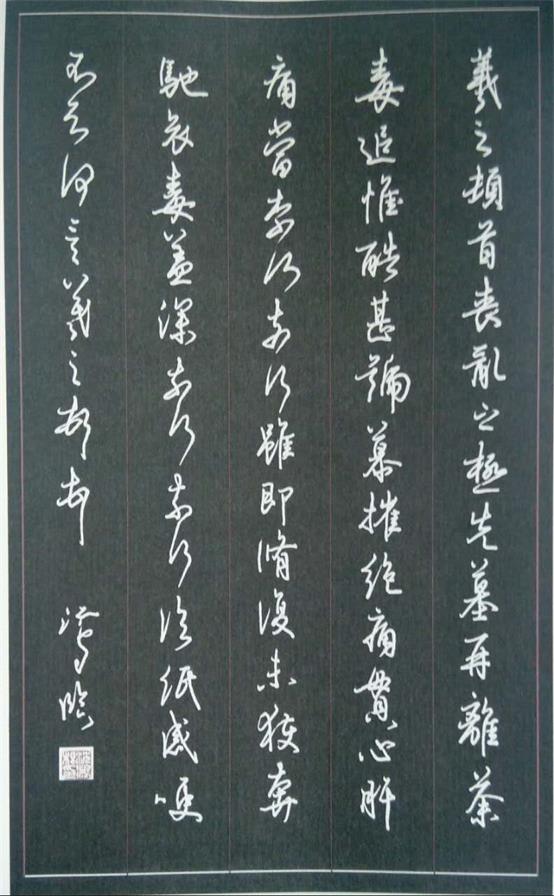 羲之頓首喪亂之極先墓再離荼
毒追惟酷甚號慕摧絕痛貫心肝
痛當奈何奈何雖即脩復未獲奔
馳哀毒益深奈何奈何臨紙感哽
不知何言羲之頓首 臨